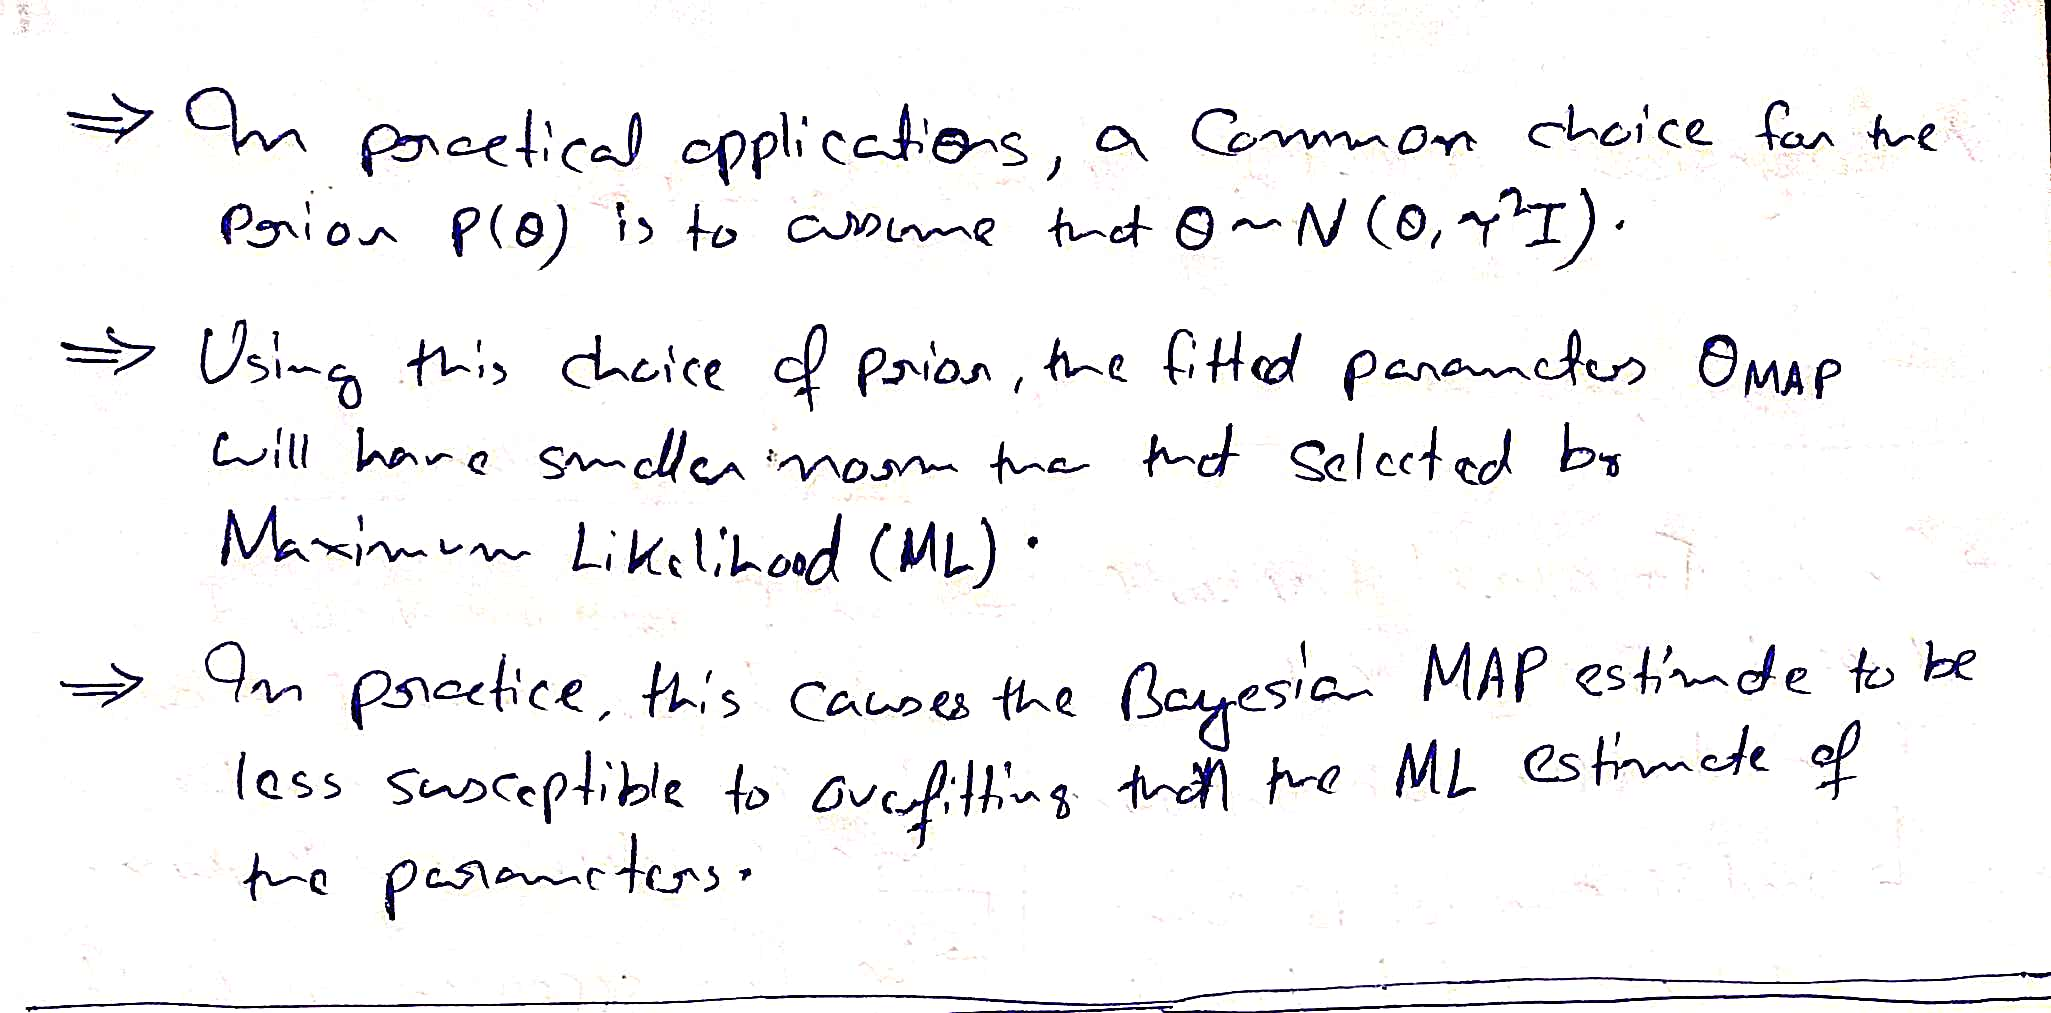 ⇒ In practical applications, a Common choice for the
Prior P(θ) is to assume that θ ~ N(0, τ²I).
⇒ Using this choice of prior, the fitted parameters θMAP
will have smaller norm the that selected by
Maximum Likelihood (ML).
⇒ In practice, this causes the Bayesian MAP estimate to be
less susceptible to overfitting than the ML estimate of
the parameters.